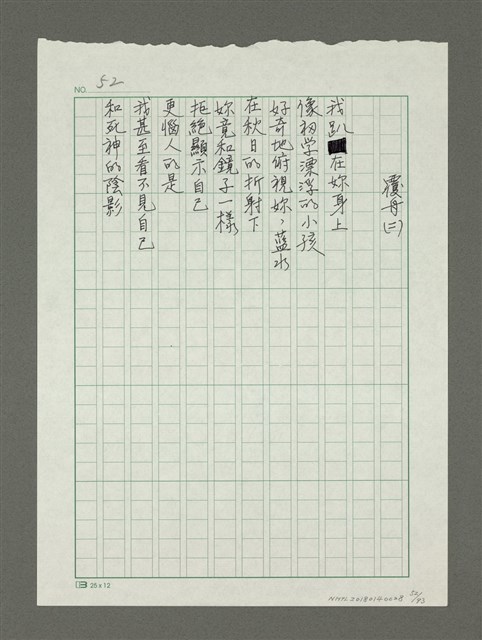 NO. 52
覆舟(三)
我趴在妳身上
像初学漂浮的小孩
好奇地俯視妳，藍水
在秋日的折射下
妳竟和鏡子一樣
拒絕顯示自己
更惱人的是
我甚至看不見自己
和死神的陰影
25x12
NMTL20180140028 52/193